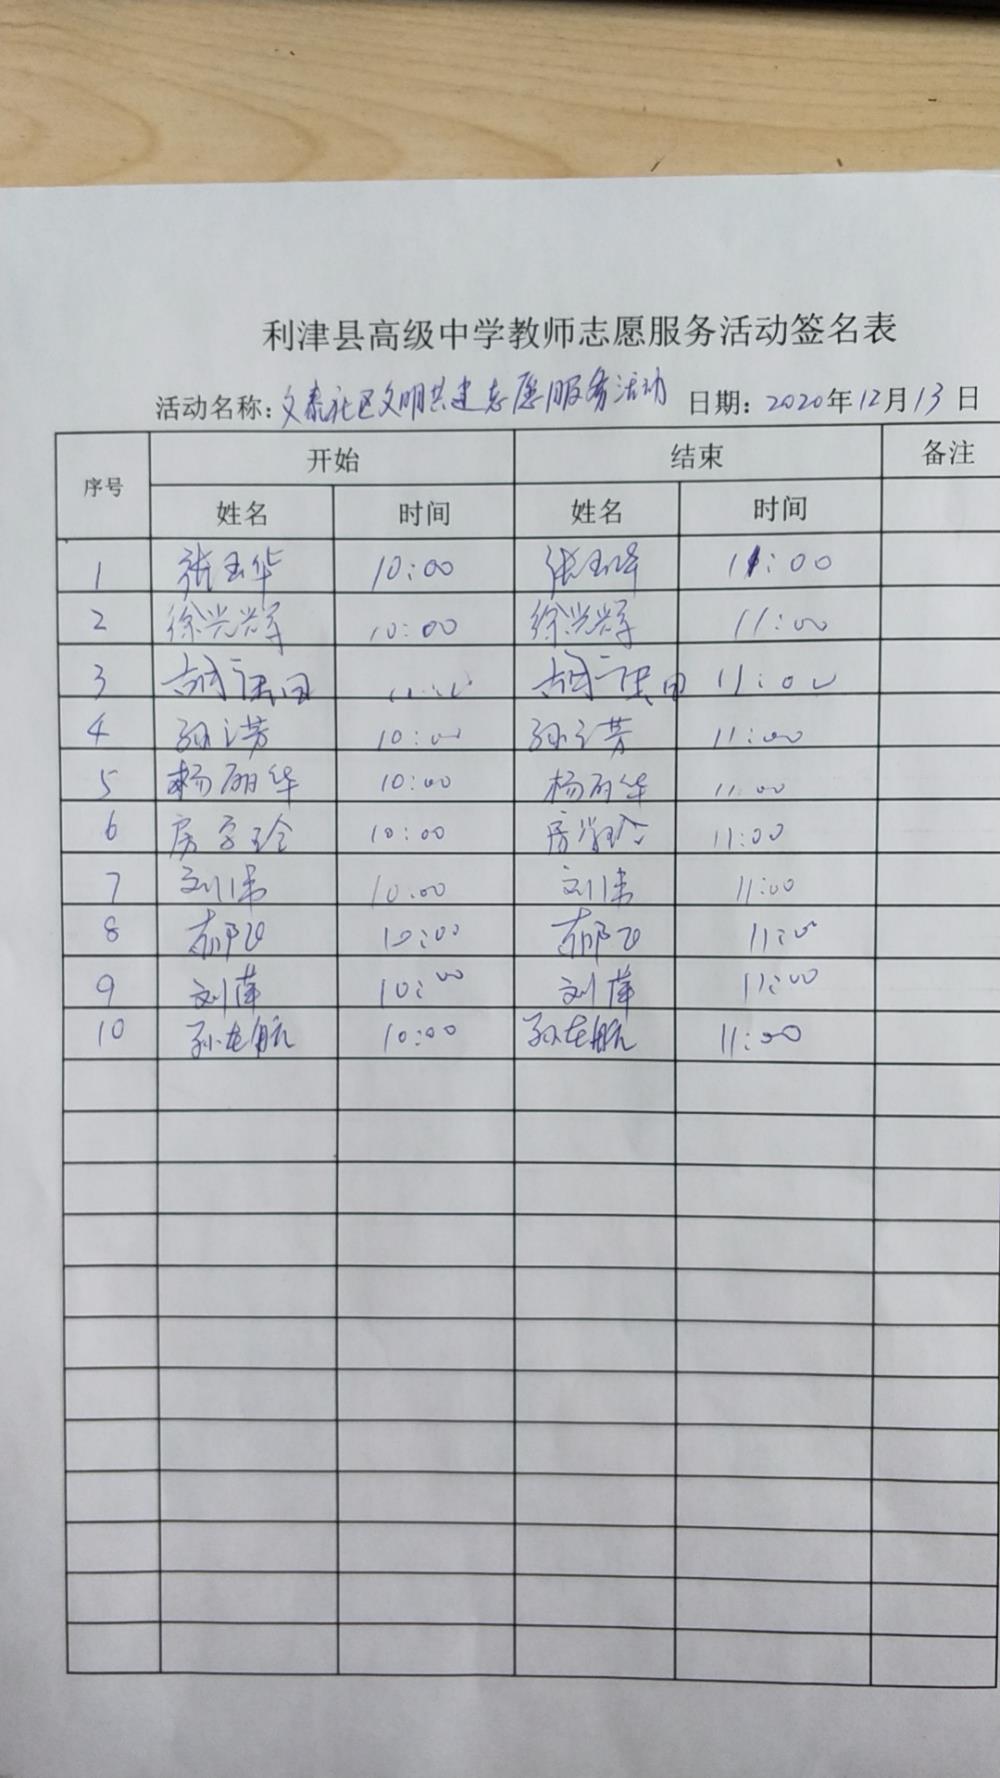 利津县高级中学教师志愿服务活动签名表
活动名称:文泰社区文明共建志愿服务活动 日期:2020年12月13日
序号 开始 结束 备注
姓名 时间 姓名 时间
1 张玉华 10:00 张玉华 11:00
2 徐兴兴军 10:00 徐兴兴军 11:00
3 11:00
4 孙之芳 10:00 孙之芳 11:00
5 杨丽华 10:00 杨丽华 11:00
6 房学玲 10:00 房学玲 11:00
7 刘伟 10:00 刘伟 11:00
8 郝飞 10:00 郝飞 11:00
9 刘萍 10:00 刘萍 11:00
10 孙在航 10:00 孙在航 11:00